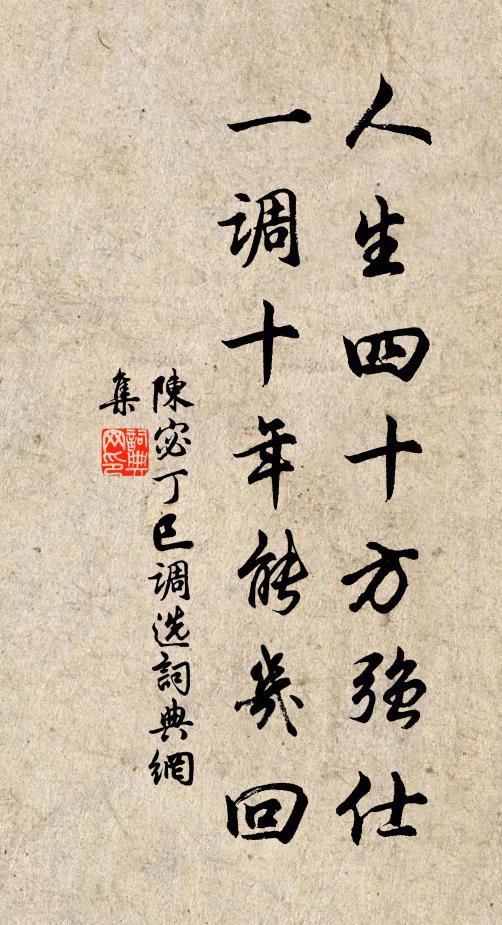 人生四十方強仕
一调十年能幾回
陳宓丁巳调选詞典網
集
詞典网印